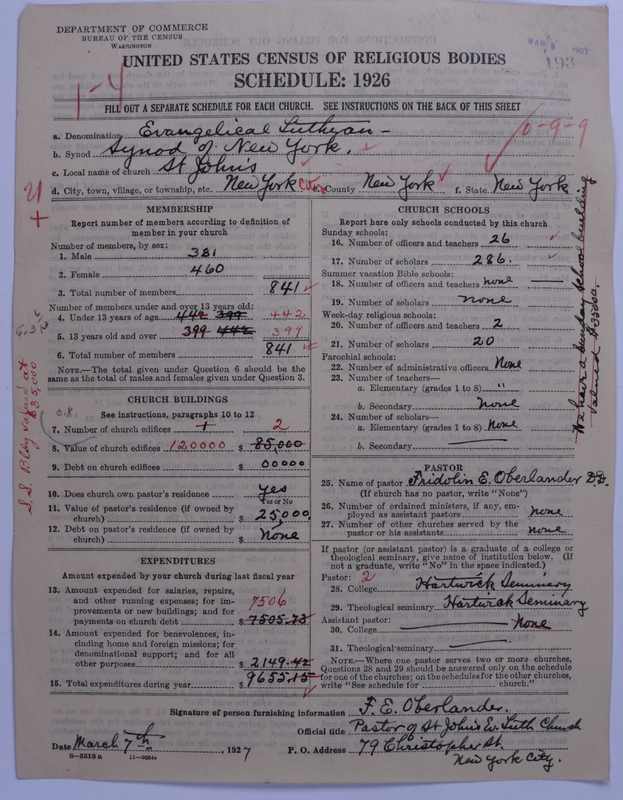 DEPARTMENT OF COMMERCE
BUREAU OF THE CENSUS
WASHINGTON
193
UNITED STATES CENSUS OF RELIGIOUS BODIES
SCHEDULE: 1926
1-4
FILL OUT A SEPARATE SCHEDULE FOR EACH CHURCH. SEE INSTRUCTIONS ON THE BACK OF THIS SHEET
0-9-9
a. Denomination Evangelical Lutheran -
b. Synod Synod of New York.
c. Local name of church St John's
d. City, town, village, or township, etc. New York City e. County New York f. State New York
MEMBERSHIP
Report number of members according to definition of
member in your church
Number of members, by sex:
1. Male 381
2. Female 460
3. Total number of members 841
Number of members under and over 13 years old:
4. Under 13 years of age 442 399 442
5. 13 years old and over 399 442 399
6. Total number of members 841
NOTE.—The total given under Question 6 should be the
same as the total of males and females given under Question 3.
CHURCH BUILDINGS
O.K.
See instructions, paragraphs 10 to 12
7. Number of church edifices 1 2
8. Value of church edifices 120000 $ 85,000
9. Debt on church edifices $ 00000
10. Does church own pastor's residence yes
Yes or No
11. Value of pastor's residence (if owned by
church) $ 25,000
12. Debt on pastor's residence (if owned by
church) $ None
S.S. Bldg valued at
$35,000
EXPENDITURES
Amount expended by your church during last fiscal year
13. Amount expended for salaries, repairs,
and other running expenses; for im-
provements or new buildings; and for
payments on church debt 7506 $ 7505.73
14. Amount expended for benevolences, in-
cluding home and foreign missions; for
denominational support; and for all
other purposes $ 2149.42
15. Total expenditures during year $ 9655.15
CHURCH SCHOOLS
Report here only schools conducted by this church
Sunday schools:
16. Number of officers and teachers 26
17. Number of scholars 286.
Summer vacation Bible schools:
18. Number of officers and teachers none
19. Number of scholars none
Week-day religious schools:
20. Number of officers and teachers 2
21. Number of scholars 20
Parochial schools:
22. Number of administrative officers None
23. Number of teachers—
a. Elementary (grades 1 to 8) "
b. Secondary None
24. Number of scholars—
a. Elementary (grades 1 to 8) None
b. Secondary
We have a Sunday School building
valued $35000.
PASTOR
25. Name of pastor Fridolin E. Oberlander D.D.
(If church has no pastor, write "None")
26. Number of ordained ministers, if any, em-
ployed as assistant pastors none
27. Number of other churches served by the
pastor or his assistants none
If pastor (or assistant pastor) is a graduate of a college or
theological seminary, give name of institution below. (If
not a graduate, write "No" in the space indicated.)
Pastor: 2
28. College Hartwick Seminary
29. Theological seminary Hartwick Seminary
Assistant pastor:
30. College None
31. Theological seminary
NOTE.—Where one pastor serves two or more churches,
Questions 28 and 29 should be answered only on the schedule
for one of the churches; on the schedules for the other churches,
write "See schedule for church."
Signature of person furnishing information F. E. Oberlander.
Official title Pastor of St John's Ev. Luth Church
Date March 7th, 1927 P. O. Address 79 Christopher St.
New York City.
8-5518a 11-9084